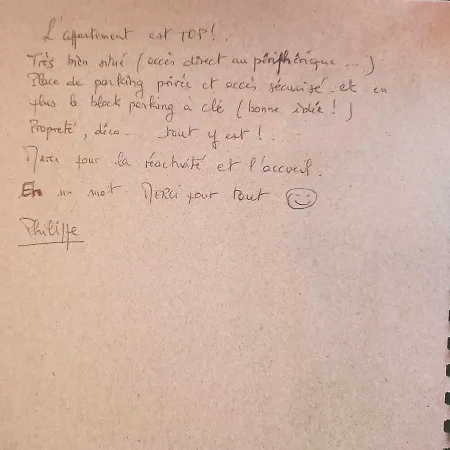 L'appartement est TOP !
Très bien situé (accès direct au périphérique ...)
Place de parking privée et accès sécurisé et en
plus le block parking à clé (bonne idée !)
Propreté, déco... tout y est !
Merci pour la réactivité et l'accueil.
En un mot. MERCI pour tout
Philippe